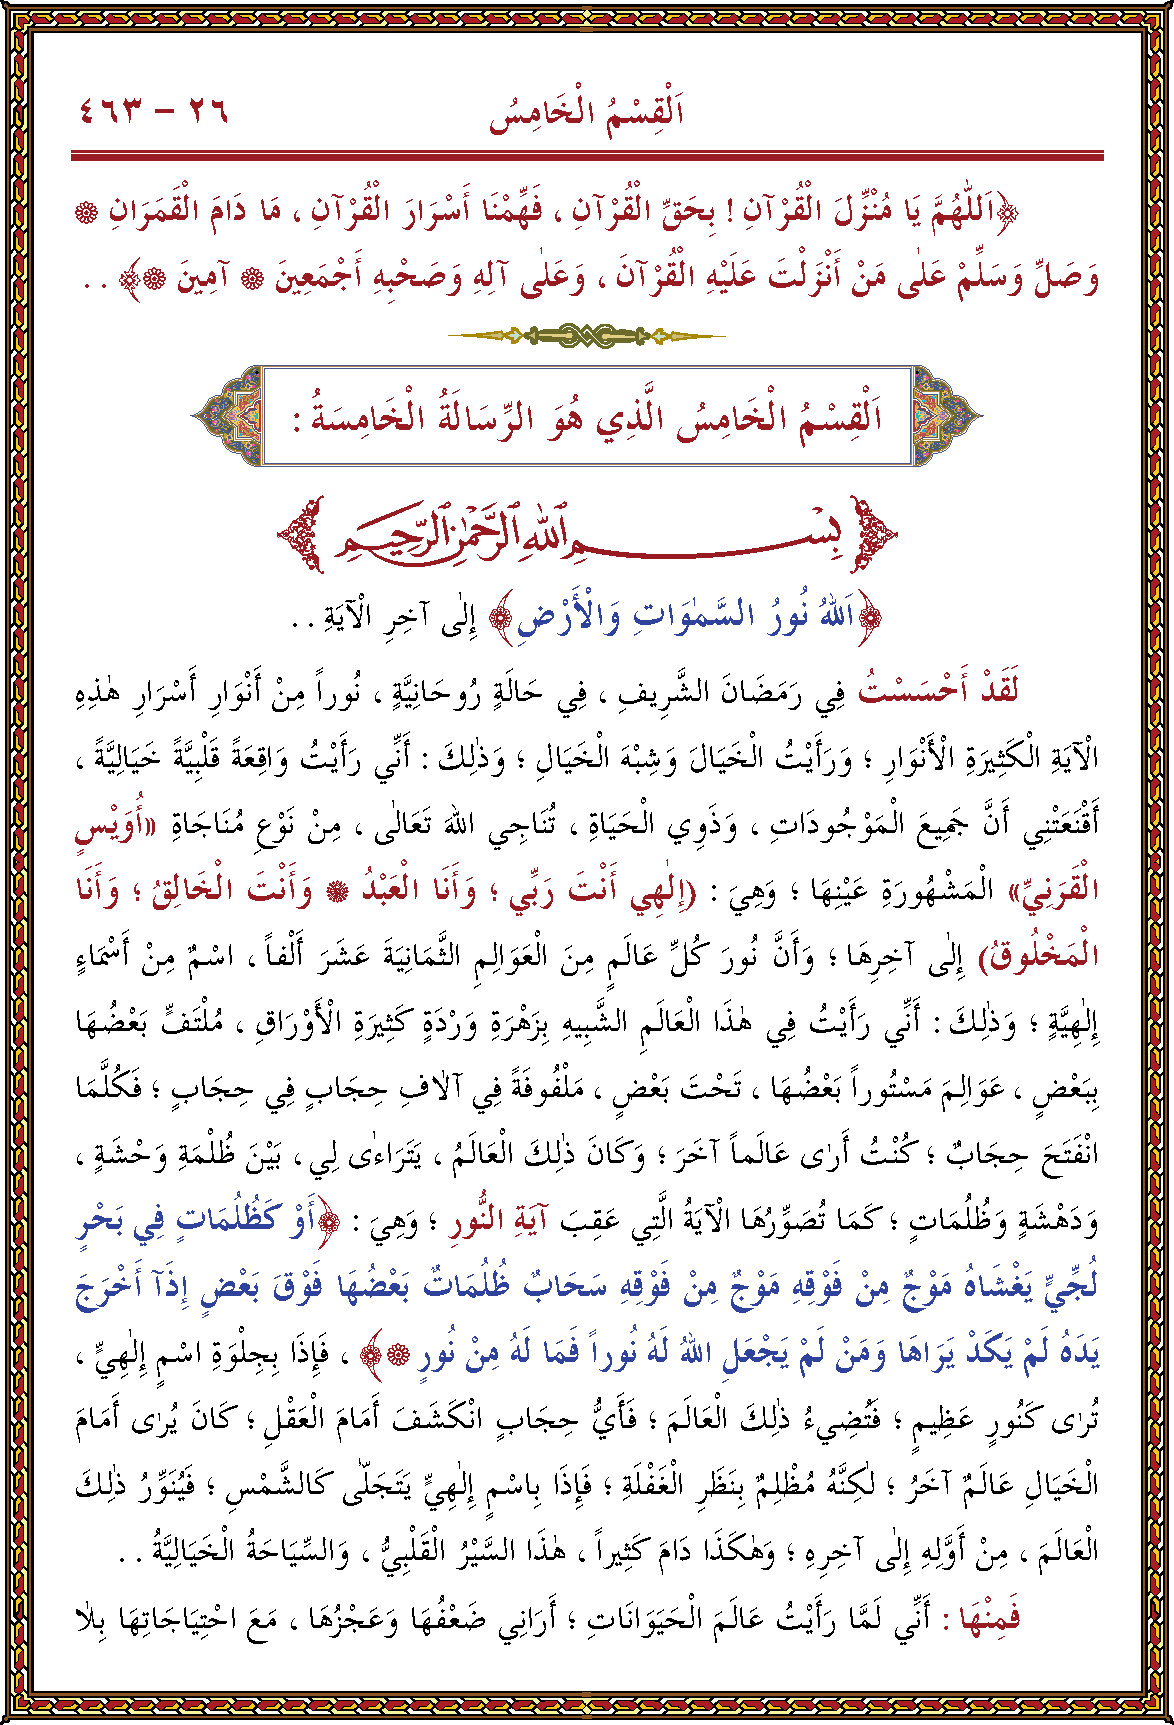 اَلْقِسْمُ الْخَامِسُ ٢٦ – ٤٦٣
﴿اَللّٰهُمَّ يَا مُنْزِّلَ الْقُرْآنِ ! بِحَقِّ الْقُرْآنِ ، فَهِّمْنَا أَسْرَارَ الْقُرْآنِ ، مَا دَامَ الْقَمَرَانِ ۞
وَصَلِّ وَسَلِّمْ عَلٰى مَنْ أَنْزَلْتَ عَلَيْهِ الْقُرْآنَ ، وَعَلٰى آلِهِ وَصَحْبِهِ أَجْمَعِينَ ۞ آمِينَ ۞﴾ . .
اَلْقِسْمُ الْخَامِسُ الَّذِي هُوَ الرِّسَالَةُ الْخَامِسَةُ :
بِسْمِ اللهِ الرَّحْمٰنِ الرَّحِيمِ
﴿اَللهُ نُورُ السَّمٰوَاتِ وَالْأَرْضِ﴾ إِلٰى آخِرِ الْآيَةِ . .
لَقَدْ أَحْسَسْتُ فِي رَمَضَانَ الشَّرِيفِ ، فِي حَالَةٍ رُوحَانِيَّةٍ ، نُوراً مِنْ أَنْوَارِ أَسْرَارِ هٰذِهِ
الْآيَةِ الْكَثِيرَةِ الْأَنْوَارِ ؛ وَرَأَيْتُ الْخَيَالَ وَشِبْهَ الْخَيَالِ ؛ وَذٰلِكَ : أَنِّي رَأَيْتُ وَاقِعَةً قَلْبِيَّةً خَيَالِيَّةً ،
أَقْنَعَتْنِي أَنَّ جَمِيعَ الْمَوْجُودَاتِ ، وَذَوِي الْحَيَاةِ ، تُنَاجِي اللهَ تَعَالٰى ، مِنْ نَوْعِ مُنَاجَاةِ «أُوَيْسٍ
الْقَرَنِيِّ» الْمَشْهُورَةِ عَيْنِهَا ؛ وَهِيَ : (إِلٰهِي أَنْتَ رَبِّي ؛ وَأَنَا الْعَبْدُ ۞ وَأَنْتَ الْخَالِقُ ؛ وَأَنَا
الْمَخْلُوقُ) إِلٰى آخِرِهَا ؛ وَأَنَّ نُورَ كُلِّ عَالَمٍ مِنَ الْعَوَالِمِ الثَّمَانِيَةَ عَشَرَ أَلْفاً ، اسْمٌ مِنْ أَسْمَاءٍ
إِلٰهِيَّةٍ ؛ وَذٰلِكَ : أَنِّي رَأَيْتُ فِي هٰذَا الْعَالَمِ الشَّبِيهِ بِزَهْرَةِ وَرْدَةٍ كَثِيرَةِ الْأَوْرَاقِ ، مُلْتَفٍّ بَعْضُهَا
بِبَعْضٍ ، عَوَالِمَ مَسْتُوراً بَعْضُهَا ، تَحْتَ بَعْضٍ ، مَلْفُوفَةً فِي آلَافِ حِجَابٍ فِي حِجَابٍ ؛ فَكُلَّمَا
انْفَتَحَ حِجَابٌ ؛ كُنْتُ أَرٰى عَالَماً آخَرَ ؛ وَكَانَ ذٰلِكَ الْعَالَمُ ، يَتَرَاءٰى لِي ، بَيْنَ ظُلْمَةِ وَحْشَةٍ ،
وَدَهْشَةٍ وَظُلُمَاتٍ ؛ كَمَا تُصَوِّرُهَا الْآيَةُ الَّتِي عَقِبَ آيَةِ النُّورِ ؛ وَهِيَ : ﴿أَوْ كَظُلُمَاتٍ فِي بَحْرٍ
لُجِّيٍّ يَغْشَاهُ مَوْجٌ مِنْ فَوْقِهِ مَوْجٌ مِنْ فَوْقِهِ سَحَابٌ ظُلُمَاتٌ بَعْضُهَا فَوْقَ بَعْضٍ إِذَآ أَخْرَجَ
يَدَهُ لَمْ يَكَدْ يَرَاهَا وَمَنْ لَمْ يَجْعَلِ اللهُ لَهُ نُوراً فَمَا لَهُ مِنْ نُورٍ ۞﴾ ، فَإِذَا بِجِلْوَةِ اسْمٍ إِلٰهِيٍّ ،
تُرٰى كَنُورٍ عَظِيمٍ ؛ فَتُضِيءُ ذٰلِكَ الْعَالَمَ ؛ فَأَيُّ حِجَابٍ انْكَشَفَ أَمَامَ الْعَقْلِ ؛ كَانَ يُرٰى أَمَامَ
الْخَيَالِ عَالَمٌ آخَرُ ؛ لٰكِنَّهُ مُظْلِمٌ بِنَظَرِ الْغَفْلَةِ ؛ فَإِذَا بِاسْمٍ إِلٰهِيٍّ يَتَجَلّٰى كَالشَّمْسِ ؛ فَيُنَوِّرُ ذٰلِكَ
الْعَالَمَ ، مِنْ أَوَّلِهِ إِلٰى آخِرِهِ ؛ وَهٰكَذَا دَامَ كَثِيراً ، هٰذَا السَّيْرُ الْقَلْبِيُّ ، وَالسِّيَاحَةُ الْخَيَالِيَّةُ . .
فَمِنْهَا : أَنِّي لَمَّا رَأَيْتُ عَالَمَ الْحَيَوَانَاتِ ؛ أَرَانِي ضَعْفُهَا وَعَجْزُهَا ، مَعَ احْتِيَاجَاتِهَا بِلَا